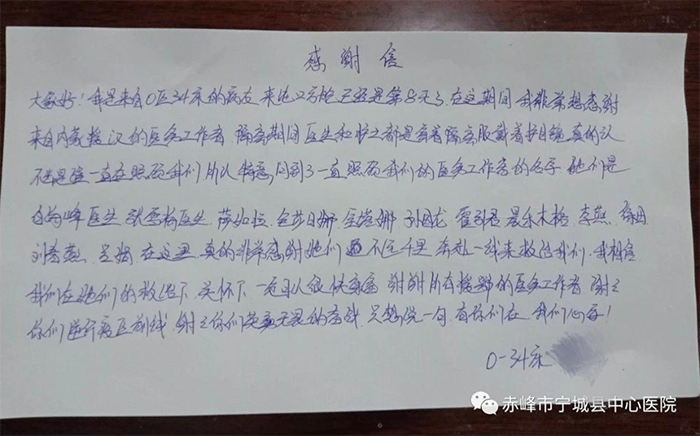 感谢信
大家好！我是来自O区34床的病友 来这边方舱已经是第8天了.在这期间 我非常想感谢
来自内蒙援汉的医务工作者 隔离期间医生和护士都是穿着隔离服戴着护目镜真的认
不出是谁一直在照顾我们 所以特意问到了一直照顾我们的医务工作者的名字 他们是
白均峰医生 张 杨医生 萨如拉 金莎日娜 金 娜 孙国龙 霍 君 乐木格 李燕 徐田
刘 燕 在这里 真的非常感谢他们 不远千里 奔赴一线来救治我们.我相信
我们在他们的救治下 关怀下 一定可以很快痊愈 谢谢所有援鄂的医务工作者 谢谢
你们逆行疫区前线 谢谢你们英勇无畏的奋战 只想说一句 有你们在 我们心安！
O-34床
赤峰市宁城县中心医院